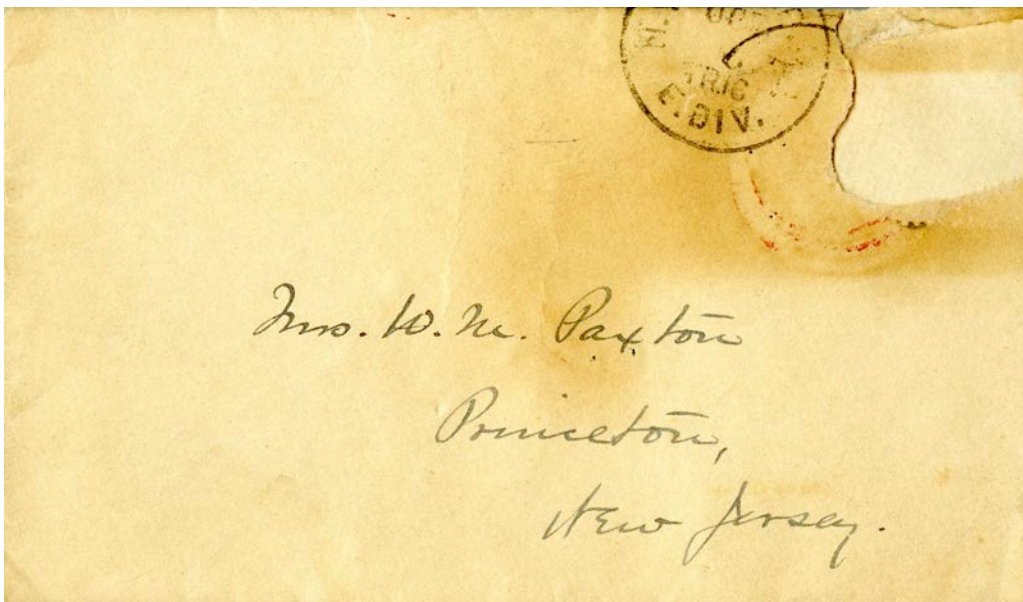 E.DIV.
Mrs. W. M. Paxton
Princeton,
New Jersey.